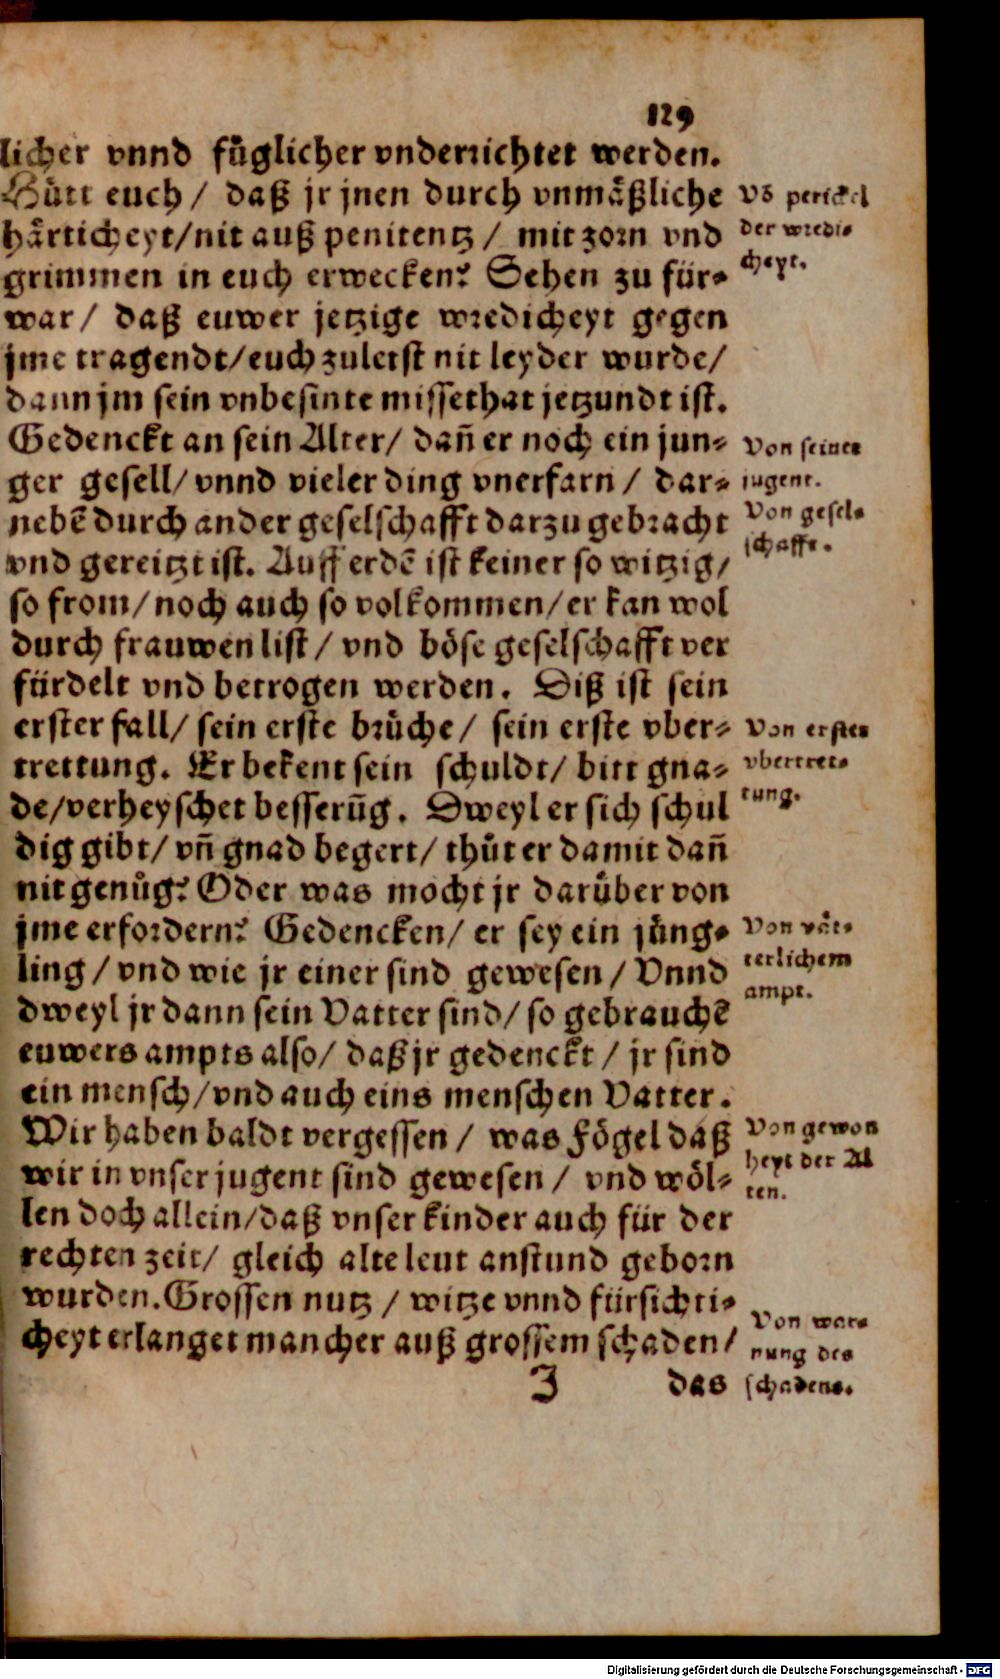 129
licher vnnd fuͤglicher vnderrichtet werden.
Huͤtt euch / daß jr jnen durch vnmaͤßliche
haͤrticheyt/nit auß penitentz / mit zorn vnd
grimmen in euch erwecken? Sehen zu für-
war / daß euwer jetzige wredicheyt gegen
jme tragendt/euch zuletst nit leyder wurde/
dann jm sein vnbesinte missethat jetzundt ist.
Gedenckt an sein Alter/ dañ er noch ein jun-
ger gesell/ vnnd vieler ding vnerfarn / dar-
nebẽ durch ander geselschafft darzu gebracht
vnd gereitzt ist. Auff erdẽ ist keiner so witzig/
so from/noch auch so volkommen/er kan wol
durch frauwen list / vnd böse geselschafft ver
fürdelt vnd betrogen werden. Diß ist sein
erster fall/ sein erste bruͤche/ sein erste vber-
trettung. Er bekent sein schuldt/ bitt gna-
de/verheyschet besserũg. Dweyl er sich schul
dig gibt/ vñ gnad begert/ thuͤt er damit dañ
nit genuͤg? Oder was mocht jr daruͤber von
jme erfordern? Gedencken/ er sey ein juͤng-
ling / vnd wie jr einer sind gewesen / Vnnd
dweyl jr dann sein Vatter sind/ so gebrauchẽ
euwers ampts also/ daß jr gedenckt / jr sind
ein mensch/vnd auch eins menschen Vatter.
Wir haben baldt vergessen / was fögel daß
wir in vnser jugent sind gewesen / vnd wöl-
len doch allein/daß vnser kinder auch für der
rechten zeit/ gleich alte leut anstund geborn
wurden. Grossen nutz / witze vnnd fürsichti-
cheyt erlanget mancher auß grossem schaden/
J das
Võ perickel
der wredi-
cheyt.
Von seiner
jugent.
Von gesel-
schafft.
Von erster
vbertret-
tung.
Von vaͤt-
terlichem
ampt.
Von gewon
heyt der Al
ten.
Von war-
nung des
schadens.
Digitalisierung gefördert durch die Deutsche Forschungsgemeinschaft - DFG